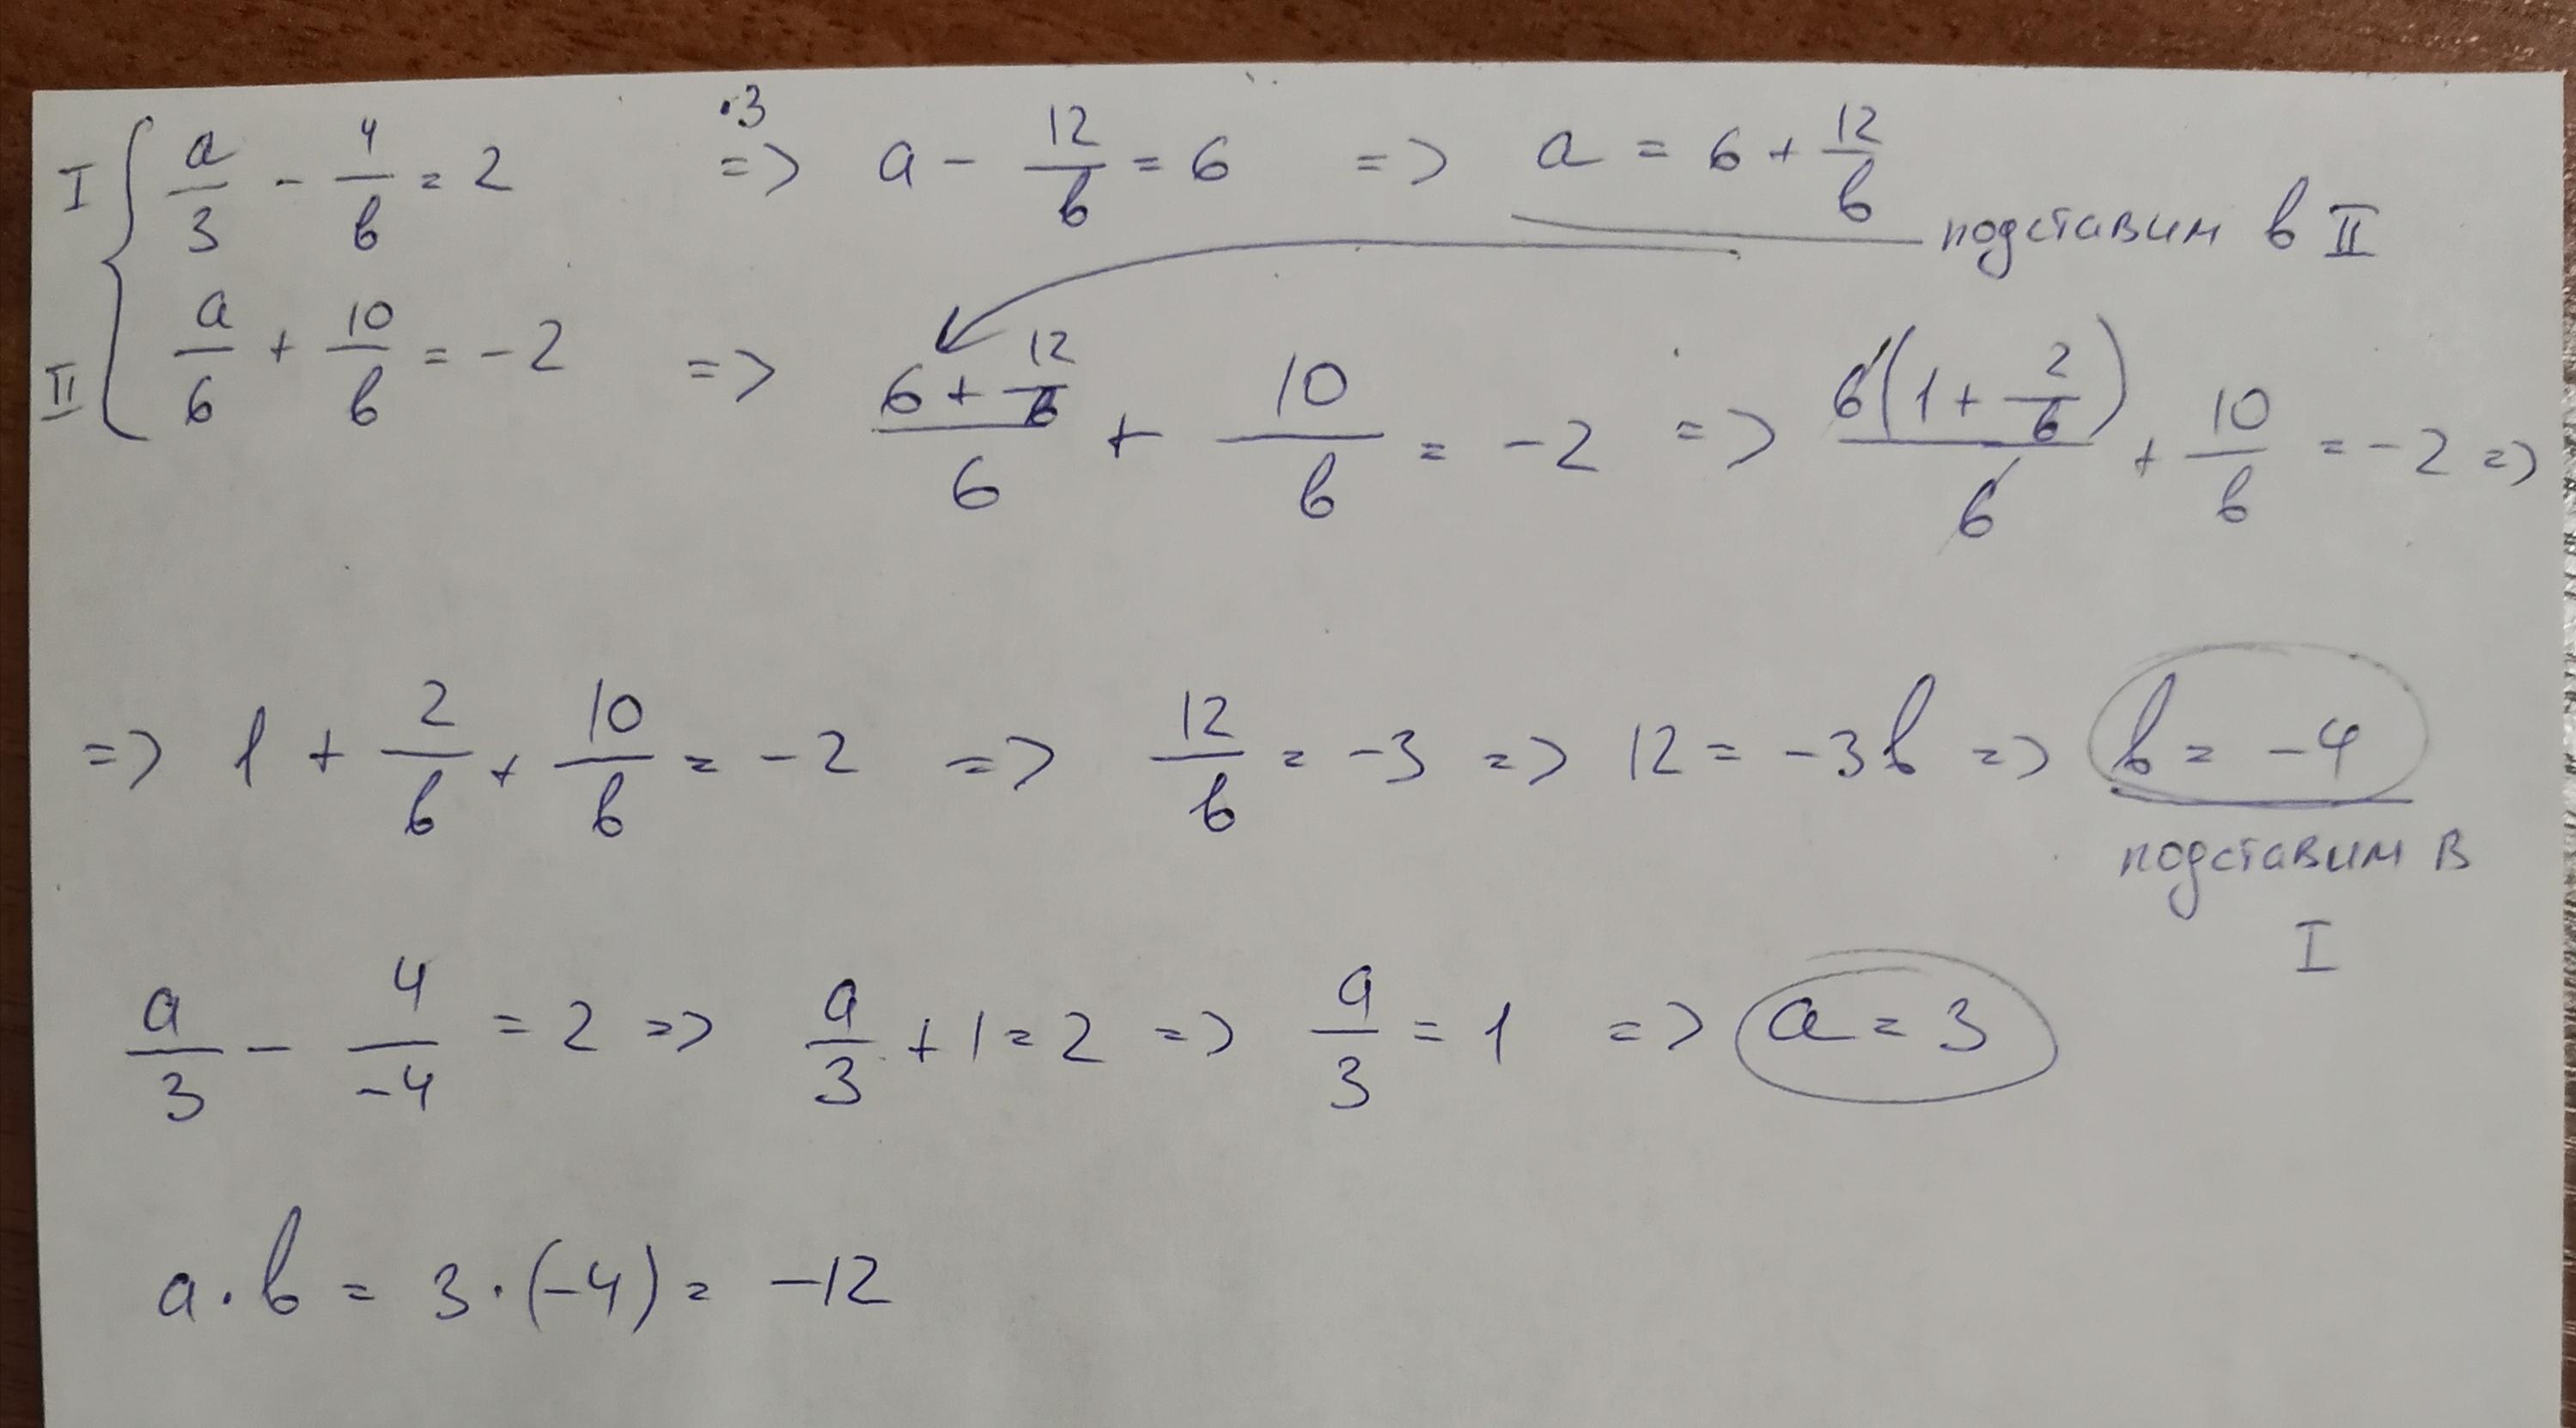 I { a/3 - 4/b = 2 ·3 => a - 12/b = 6 => a = 6 + 12/b подставим в II
II a/6 + 10/b = -2 => (6 + 12/b)/6 + 10/b = -2 => 6(1 + 2/b)/6 + 10/b = -2 =>
=> 1 + 2/b + 10/b = -2 => 12/b = -3 => 12 = -3b => b = -4
подставим в
I
a/3 - 4/-4 = 2 => a/3 + 1 = 2 => a/3 = 1 => a = 3
a · b = 3 · (-4) = -12